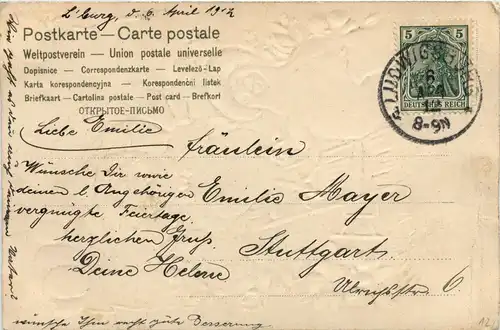 L'burg, d. 6. April 1912
Postkarte – Carte postale
Weltpostverein – Union postale universelle
Dopisnice – Correspondenzkarte – Levelező-Lap
Karta korespondencyjna – Korespondenční listek
Briefkaart – Cartolina postale – Post card – Brefkort
ОТКРЫТОЕ-ПИСЬМО
5 5
DEUTSCHES REICH
LUDWIGSBURG
6
8-9N
Liebe Emilie
Wünsche Dir sowie
deinen l. Angehörigen
vergnügte Feiertage
herzlichen Gruß
Deine Helene
Fräulein
Emilie Mayer
Stuttgart
Ulrichsstr 6
wünsche Ihm recht gute Besserung